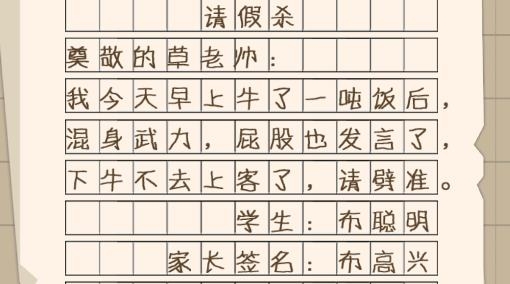 请假杀
奠敬的草老帅：
我今天早上牛了一吨饭后，
混身武力，屁股也发言了，
下牛不去上客了，请劈准。
学生：布聪明
家长签名：布高兴